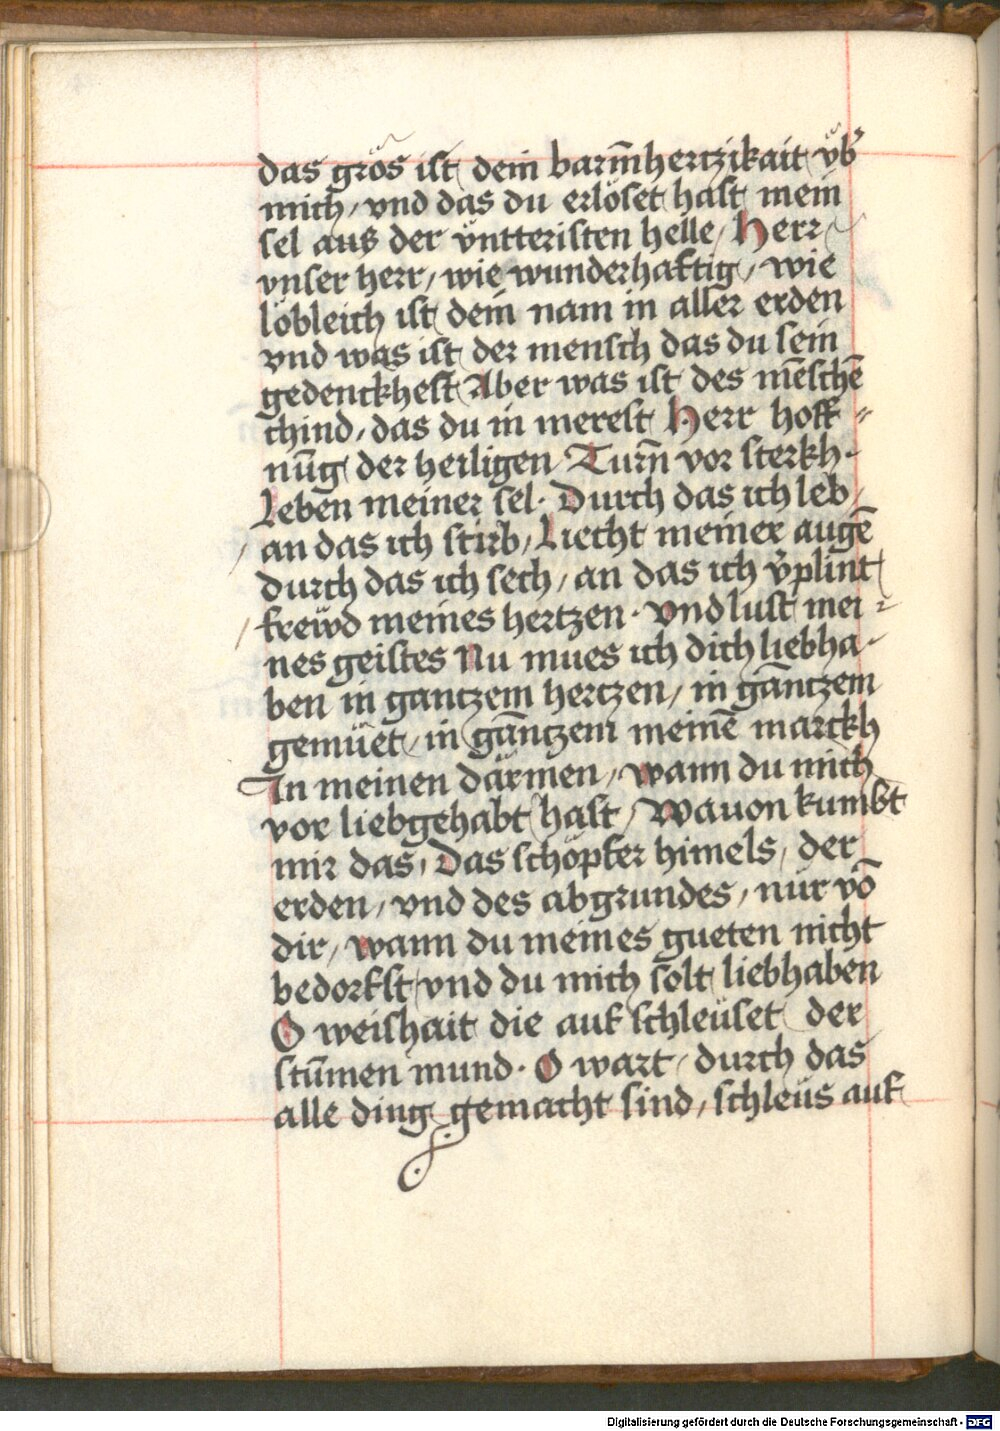 das grös ist dein barm̄hertzikait vb̾
mich / vnd das du erlöset hast mein
sel auß der vntteristen helle / Herr
vnser herr / wie wunderhaftig / wie
löbleich ist dein nam in aller erden
vnd was ist der mensch das du sein
gedenckhest Aber was ist des mēschē
chind / das du in merest Herr hoff
nūg der heiligen Turn̄ vor sterkh ·
Leben meiner sel · Durch das ich leb /
/ an das ich stirb / Liecht meiner augē
durch das ich sech / an das ich v̾plint
/ frewd meines hertzen · vnd lust mei
nes geistes Nu mues ich dich liebha
ben in gantzem hertzen / in gāntzem
gemüet / in gāntzem meinē marckh
In meinen därmen / wann du mich
vor liebgehabt hast / Wauon kumbt
mir das / Das schöpfer himels / der
erden / vnd des abgrundes / nur vō
dir / wann du meines gueten nicht
bedorfst vnd du mich solt liebhaben
O weishait die auf schleüset der
stūmen mund · O wart / durch das
alle ding gemacht sind / schleüs auf
Digitalisierung gefördert durch die Deutsche Forschungsgemeinschaft - DFG